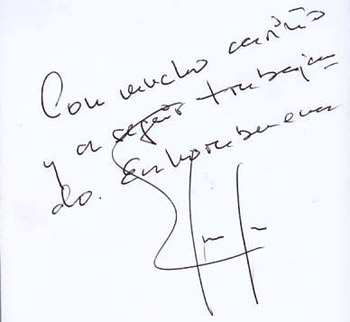 Con mucho cariño
y a seguir trabajan
do. Enhorabuena